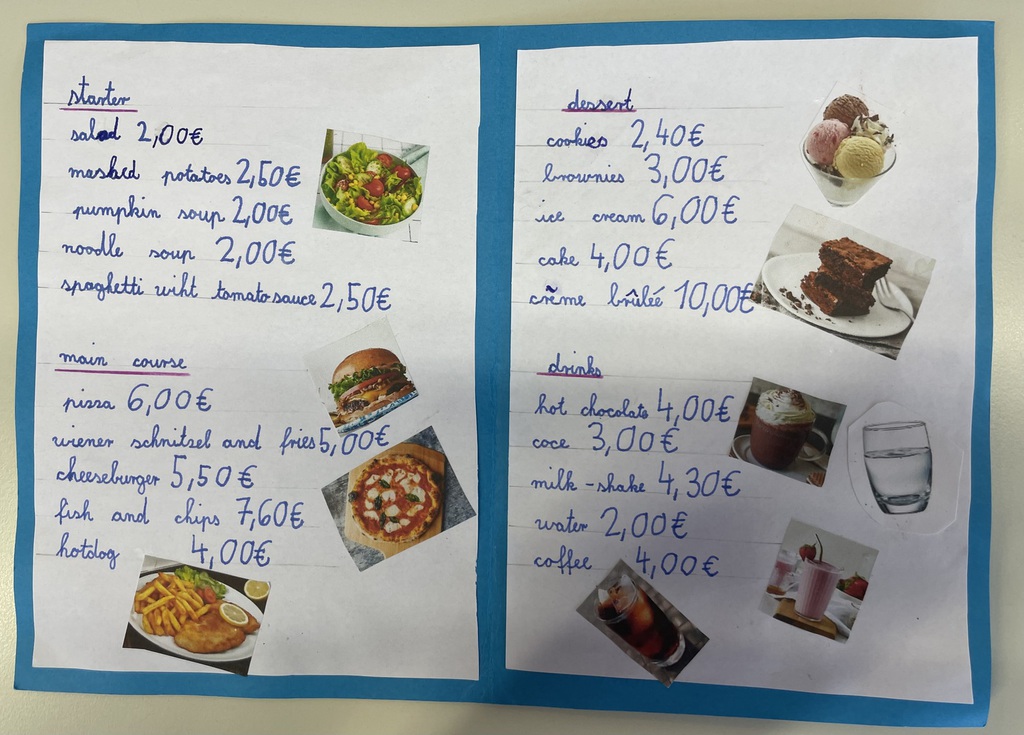 starter
salad 2,00€
mashed potatoes 2,50€
pumpkin soup 2,00€
noodle soup 2,00€
spaghetti wiht tomato sauce 2,50€
main course
pizza 6,00€
wiener schnitzel and fries 5,00€
cheeseburger 5,50€
fish and chips 7,60€
hotdog 4,00€
dessert
cookies 2,40€
brownies 3,00€
ice cream 6,00€
cake 4,00€
crème brûlée 10,00€
drinks
hot chocolate 4,00€
coce 3,00€
milk-shake 4,30€
water 2,00€
coffee 4,00€